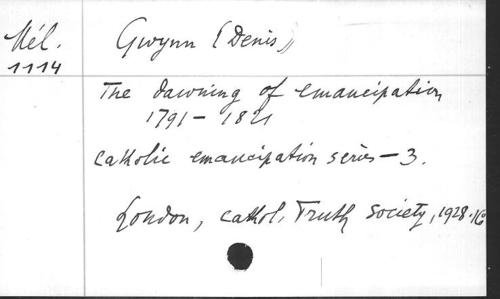 Mél.
1114
Gwynn (Denis)
The dawning of emancipation
1791 - 1821
Catholic emancipation series - 3.
London, cathol. Truth Society, 1928. 16